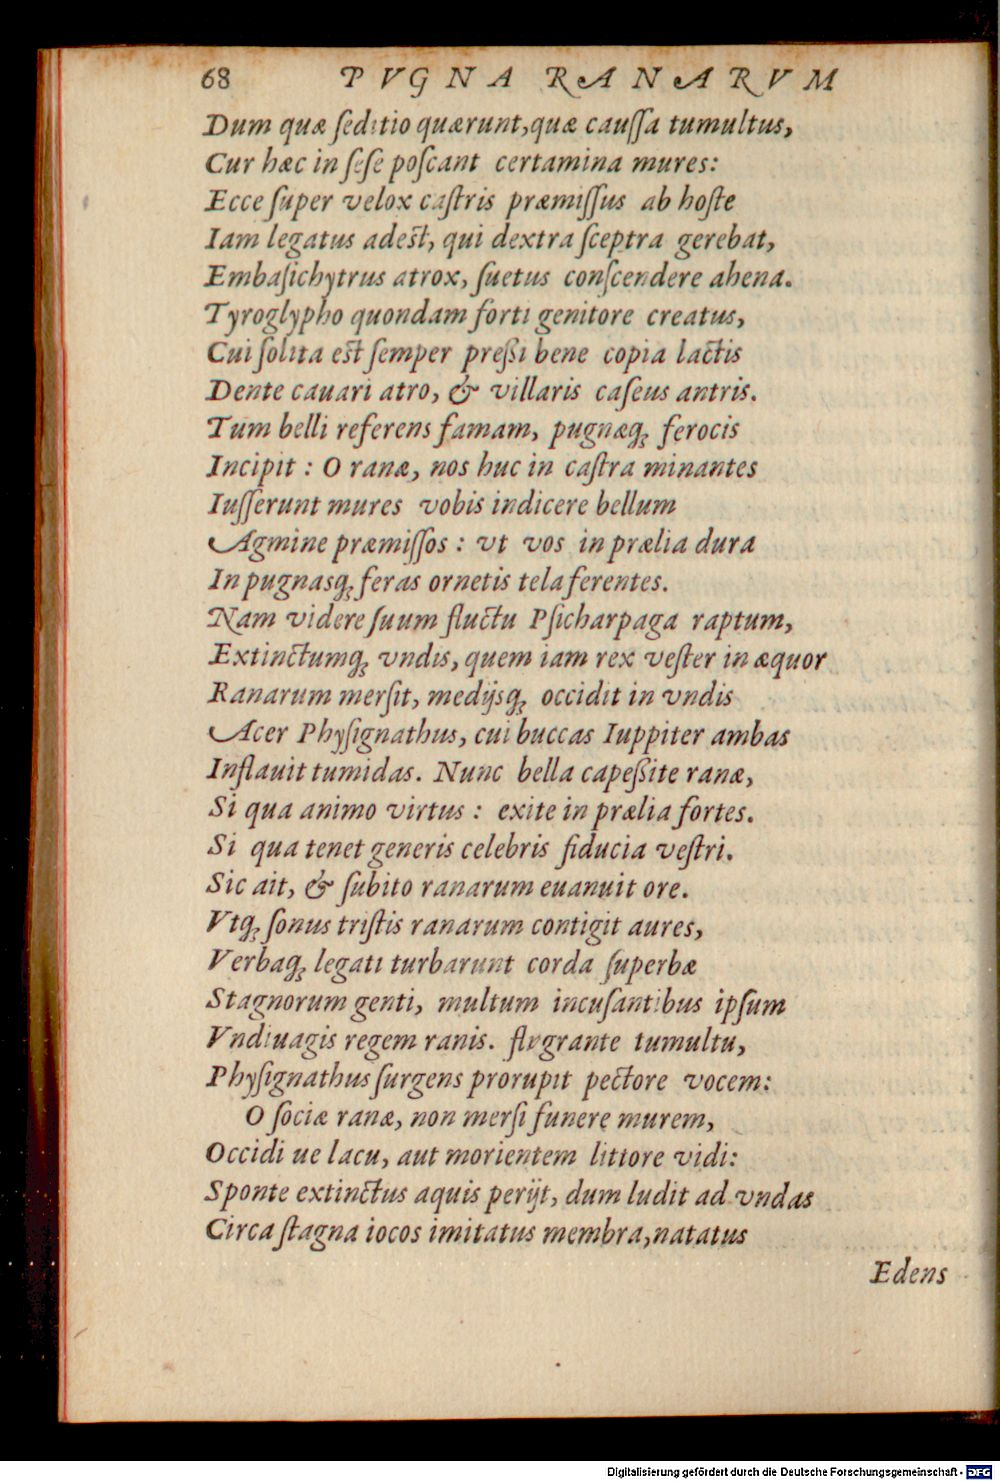 68 PVGNA RANARVM
Dum quæ ſeditio quærunt, quæ cauſſa tumultus,
Cur hæc in ſeſe poſcant certamina mures:
Ecce ſuper velox caſtris præmiſſus ab hoſte
Iam legatus adeſt, qui dextra ſceptra gerebat,
Embaſichytrus atrox, ſuetus conſcendere ahena.
Tyroglypho quondam forti genitore creatus,
Cui ſolita eſt ſemper preßi bene copia lactis
Dente cauari atro, & villaris caſeus antris.
Tum belli referens famam, pugnæq; ferocis
Incipit : O ranæ, nos huc in caſtra minantes
Iuſſerunt mures vobis indicere bellum
Agmine præmiſſos : vt vos in prælia dura
In pugnasq; feras ornetis tela ferentes.
Nam videre ſuum fluctu Pſicharpaga raptum,
Extinctumq; vndis, quem iam rex veſter in æquor
Ranarum merſit, medijsq; occidit in vndis
Acer Phyſignathus, cui buccas Iuppiter ambas
Inflauit tumidas. Nunc bella capeßite ranæ,
Si qua animo virtus : exite in prælia fortes.
Si qua tenet generis celebris fiducia veſtri.
Sic ait, & ſubito ranarum euanuit ore.
Vtq; ſonus triſtis ranarum contigit aures,
Verbaq; legati turbarunt corda ſuperbæ
Stagnorum genti, multum incuſantibus ipſum
Vndiuagis regem ranis. flagrante tumultu,
Phyſignathus ſurgens prorupit pectore vocem:
O ſociæ ranæ, non merſi funere murem,
Occidi ue lacu, aut morientem littore vidi:
Sponte extinctus aquis perijt, dum ludit ad vndas
Circa ſtagna iocos imitatus membra, natatus
Edens
Digitalisierung gefördert durch die Deutsche Forschungsgemeinschaft - DFG